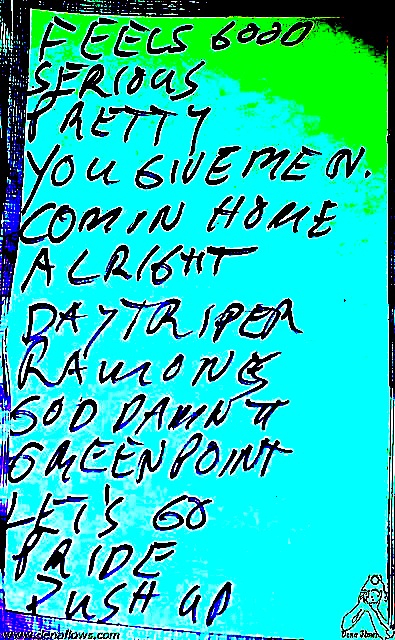 FEELS GOOD
SERIOUS
PRETTY
YOU GIVE ME N.
COMIN HOME
ALRIGHT
DAYTRIPER
RAMONES
GOD DAMN IT
GREENPOINT
LET'S GO
PRIDE
PUSH UP
www.denaflows.com
Dena Flows